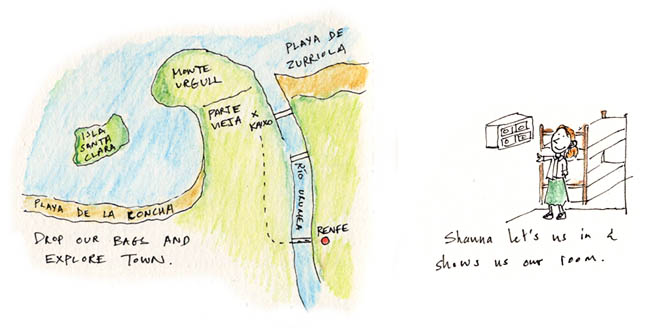 PLAYA DE
ZURRIOLA
MONTE
URGULL
PARTE
VIEJA
x
KAIXO
ISLA
SANTA
CLARA
RIO URUMEA
PLAYA DE LA RONCHA
RENFE
DROP OUR BAGS AND
EXPLORE TOWN.
Shanna let's us in &
shows us our room.